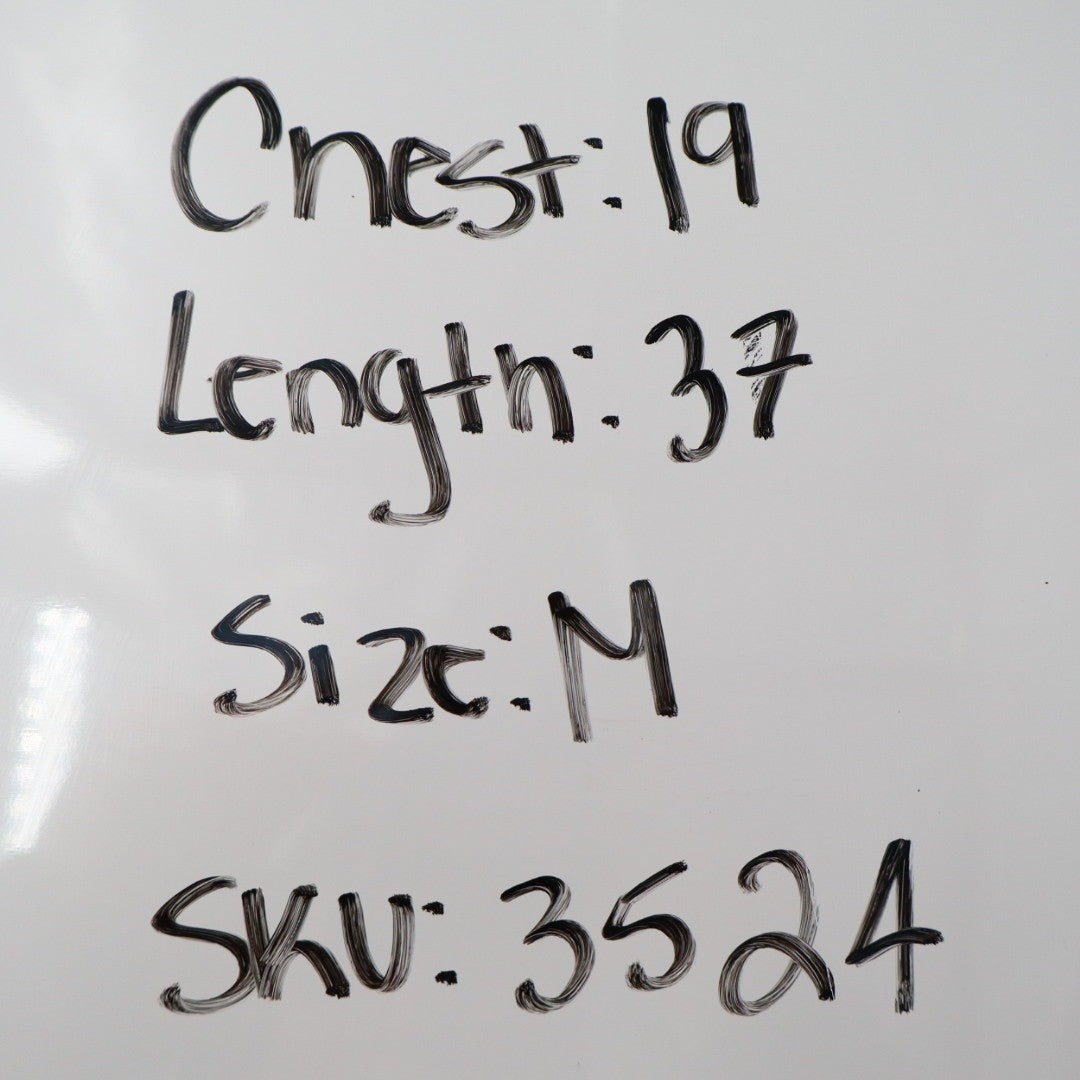 Chest: 19
Length: 37
Size: M
SKU: 3524